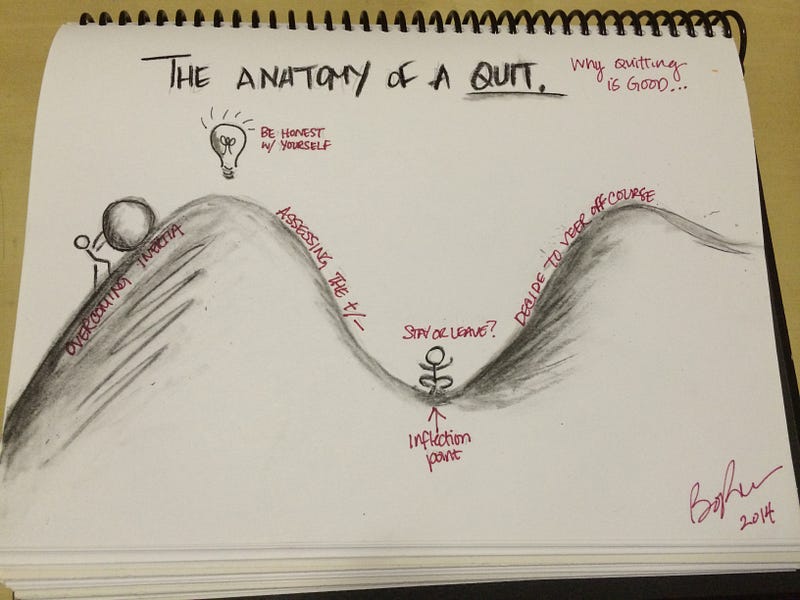 THE ANATOMY OF A QUIT.
Why Quitting
is GOOD...
BE HONEST
W/ YOURSELF
OVERCOMING INERTIA
ASSESSING THE +/-
STAY OR LEAVE?
DECIDE TO VEER OFF COURSE
Inflection
point
2014